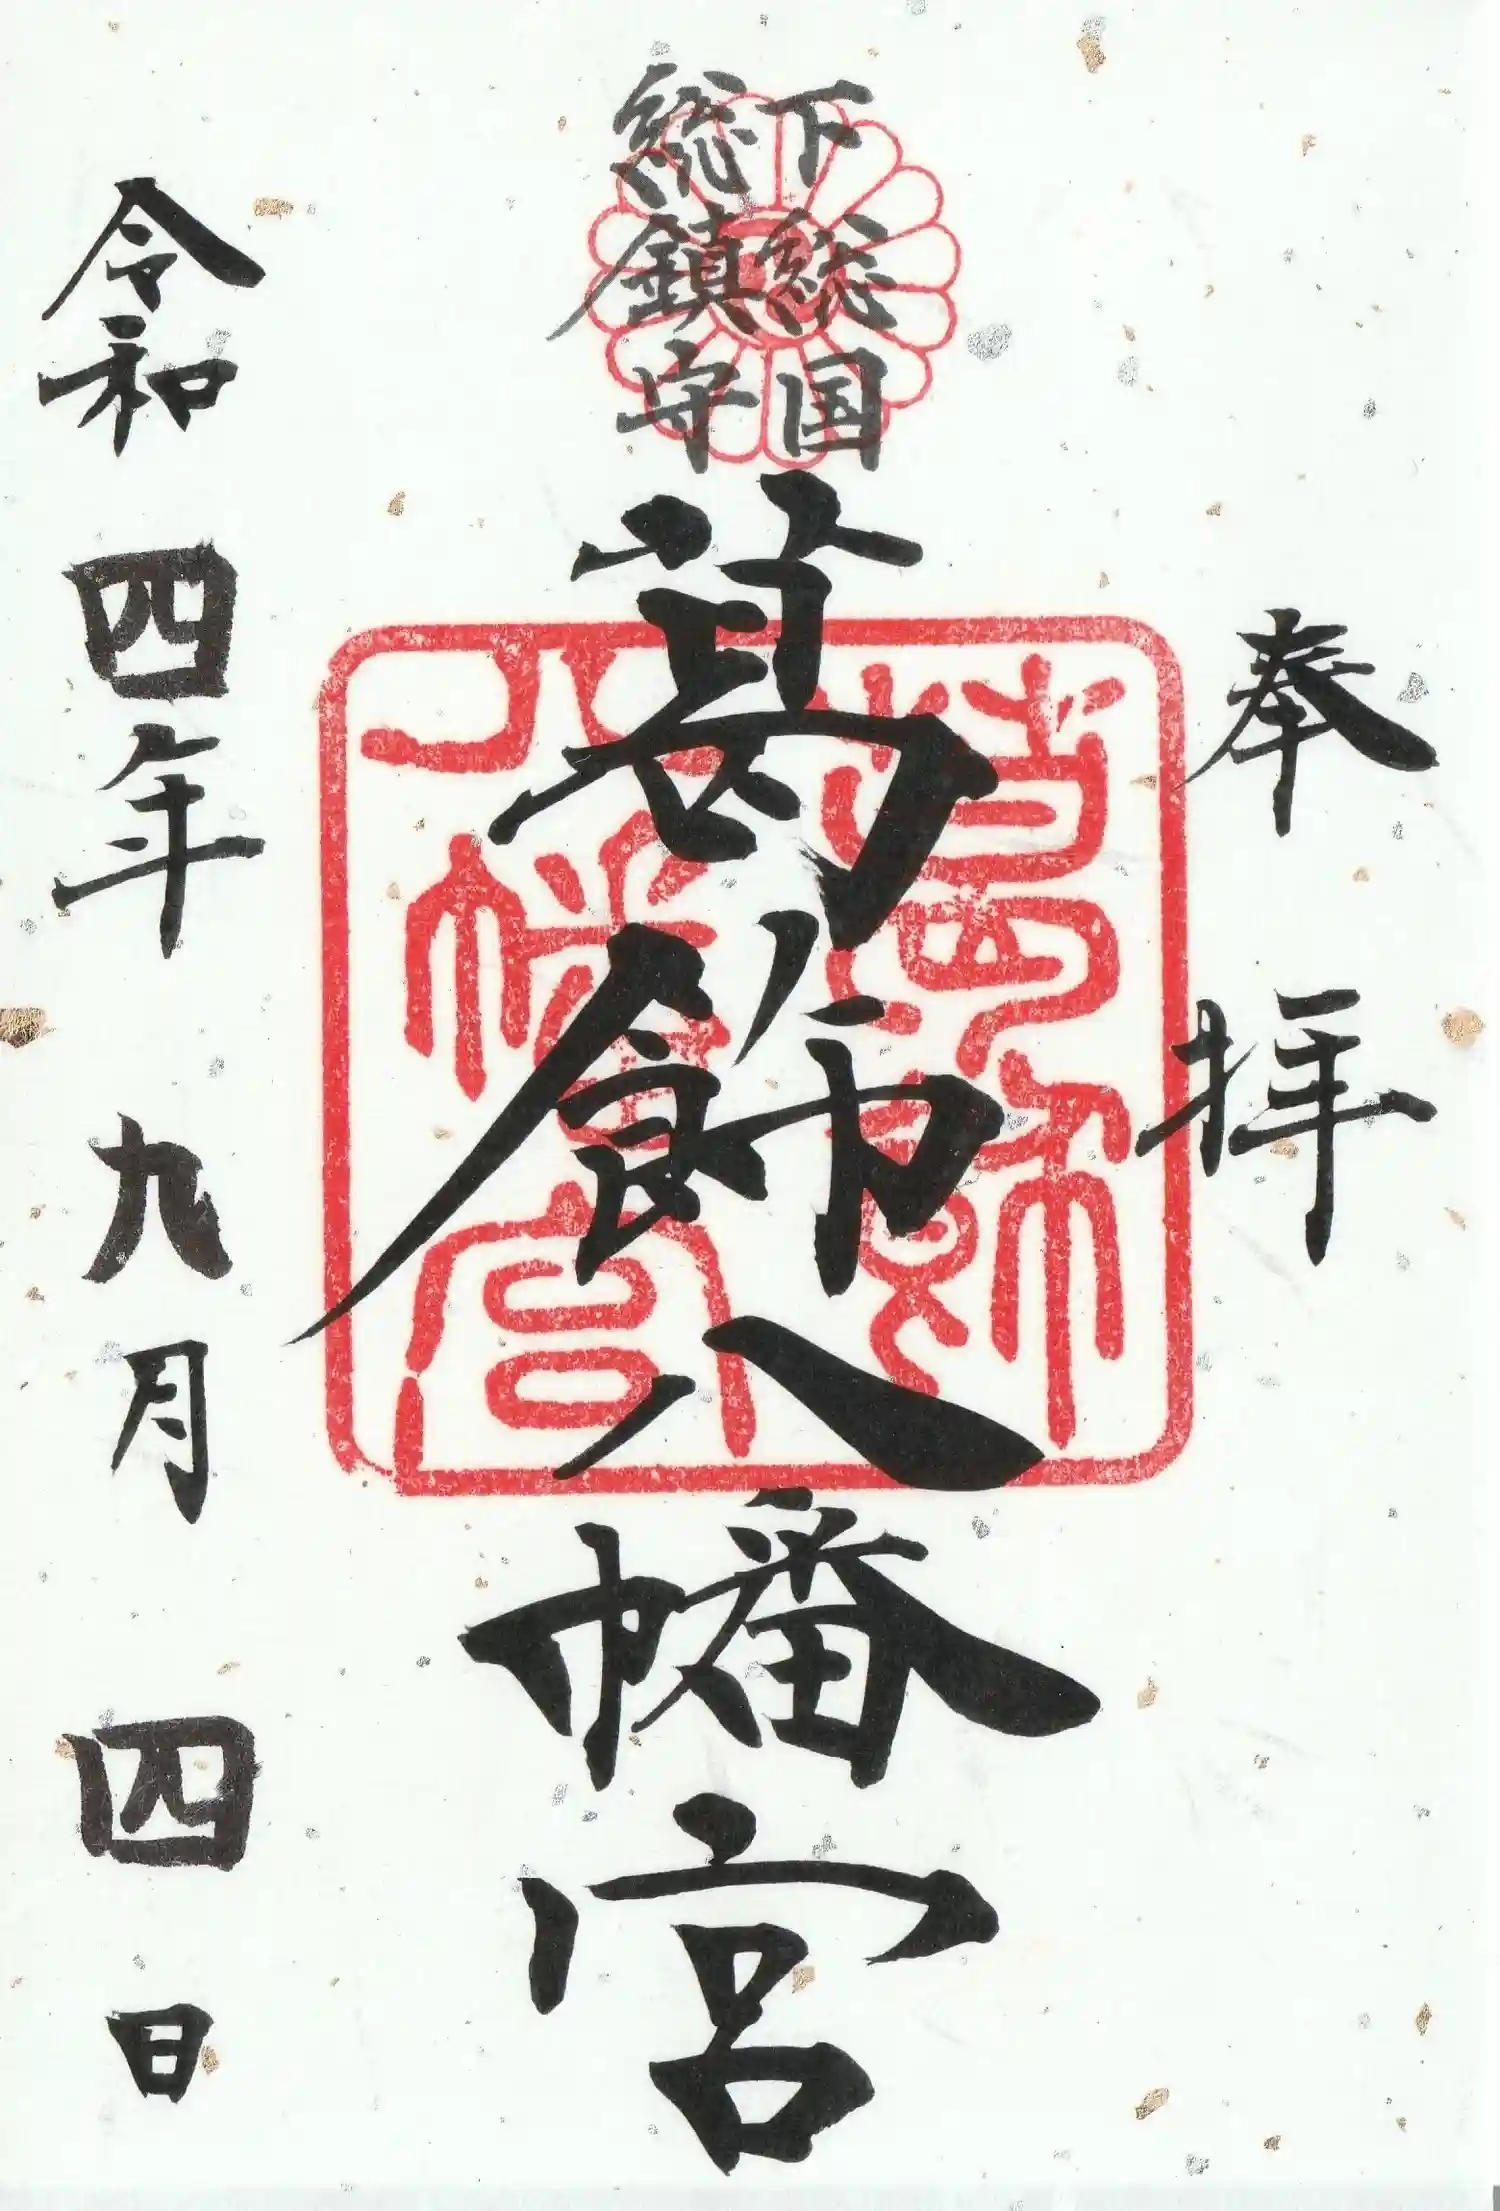 奉拝
下総国
総鎮守
葛飾八幡宮
令和四年九月四日
葛飾
八幡宮